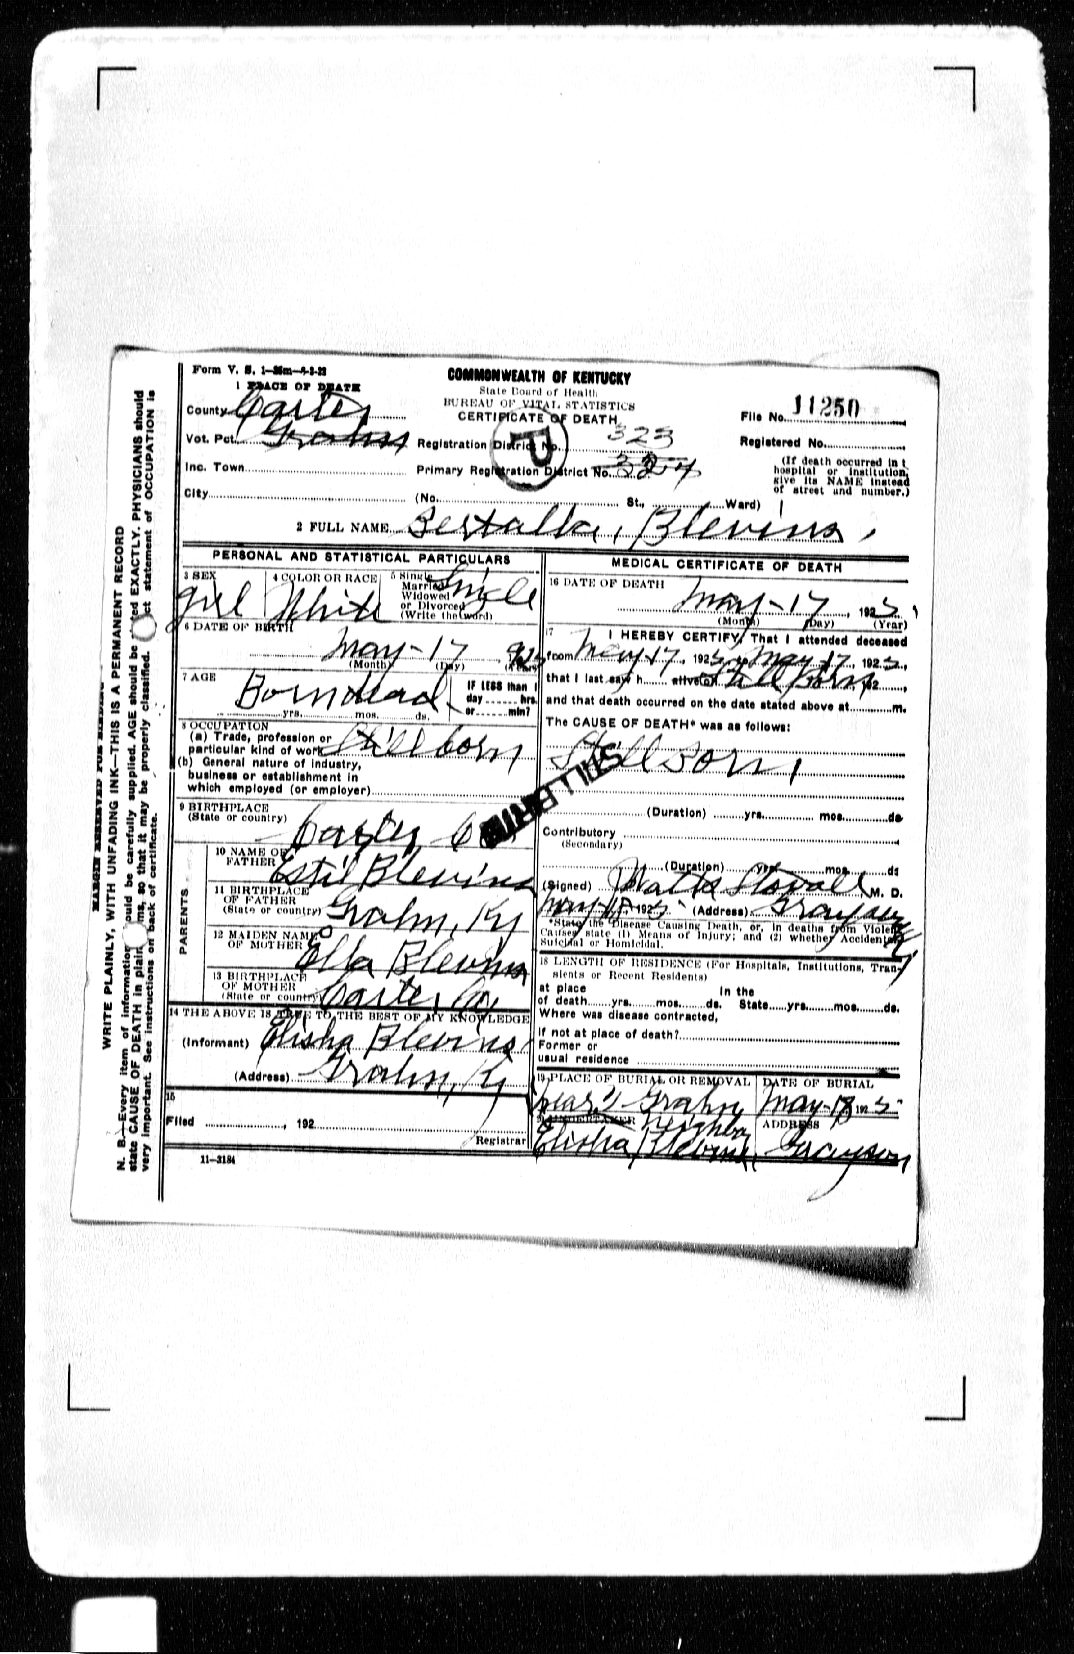 Form V. S. 1—35m—4-2-23
COMMONWEALTH OF KENTUCKY
State Board of Health
BUREAU OF VITAL STATISTICS
CERTIFICATE OF DEATH
File No. 11250
Registered No.
(If death occurred in
hospital or institution,
give its NAME instead
of street and number.)
1 PLACE OF DEATH
County Carter
Vot. Pct. Grahn
Inc. Town
City
Registration District No. 323
Primary Registration District No. 324
(No. St., Ward)
2 FULL NAME Blevins
PERSONAL AND STATISTICAL PARTICULARS
3 SEX
girl
4 COLOR OR RACE
White
5 Single
Married
Widowed
or Divorced
(Write the word)
Single
6 DATE OF BIRTH
May-17 925
(Month) (Day) (Year)
7 AGE
Born dead
yrs. mos. ds.
IF LESS than 1
day hrs.
or min?
8 OCCUPATION
(a) Trade, profession or
particular kind of work Still born
(b) General nature of industry,
business or establishment in
which employed (or employer)
9 BIRTHPLACE
(State or country)
Carter Co
PARENTS
10 NAME OF
FATHER
Estil Blevins
11 BIRTHPLACE
OF FATHER
(State or country)
Grahn, Ky
12 MAIDEN NAME
OF MOTHER
Ella Blevins
13 BIRTHPLACE
OF MOTHER
(State or country)
Carter
14 THE ABOVE IS TRUE TO THE BEST OF MY KNOWLEDGE
(Informant) Elisha Blevins
(Address) Grahn, Ky
15
Filed , 192
Registrar
11—3184
MEDICAL CERTIFICATE OF DEATH
16 DATE OF DEATH
May-17, 1925
(Month) (Day) (Year)
17 I HEREBY CERTIFY, That I attended deceased
from May 17, 1925, May 17, 1925,
that I last saw h alive on Still Born 192
and that death occurred on the date stated above at m.
The CAUSE OF DEATH* was as follows:
Still Born
STILLBIRTH
(Duration) yrs. mos. ds
Contributory
(Secondary)
(Duration) yrs. mos. ds
(Signed) Stovall M. D.
May 18, 1925 (Address) Grayson Ky
*State the Disease Causing Death, or, in deaths from Violent
Causes state (1) Means of Injury; and (2) whether Accidental,
Suicidal or Homicidal.
18 LENGTH OF RESIDENCE (For Hospitals, Institutions, Tran-
sients or Recent Residents)
At place In the
of death yrs. mos. ds. State yrs. mos. ds.
Where was disease contracted,
if not at place of death?
Former or
usual residence
19 PLACE OF BURIAL OR REMOVAL
near Grahn
DATE OF BURIAL
May-18 1925
UNDERTAKER Neighbor
Elisha Blevins
ADDRESS
Grayson
MARGIN RESERVED FOR BINDING
WRITE PLAINLY, WITH UNFADING INK—THIS IS A PERMANENT RECORD
N. B.—Every item of information should be carefully supplied. AGE should be stated EXACTLY. PHYSICIANS should
state CAUSE OF DEATH in plain terms, so that it may be properly classified. Exact statement of OCCUPATION is
very important. See instructions on back of certificate.